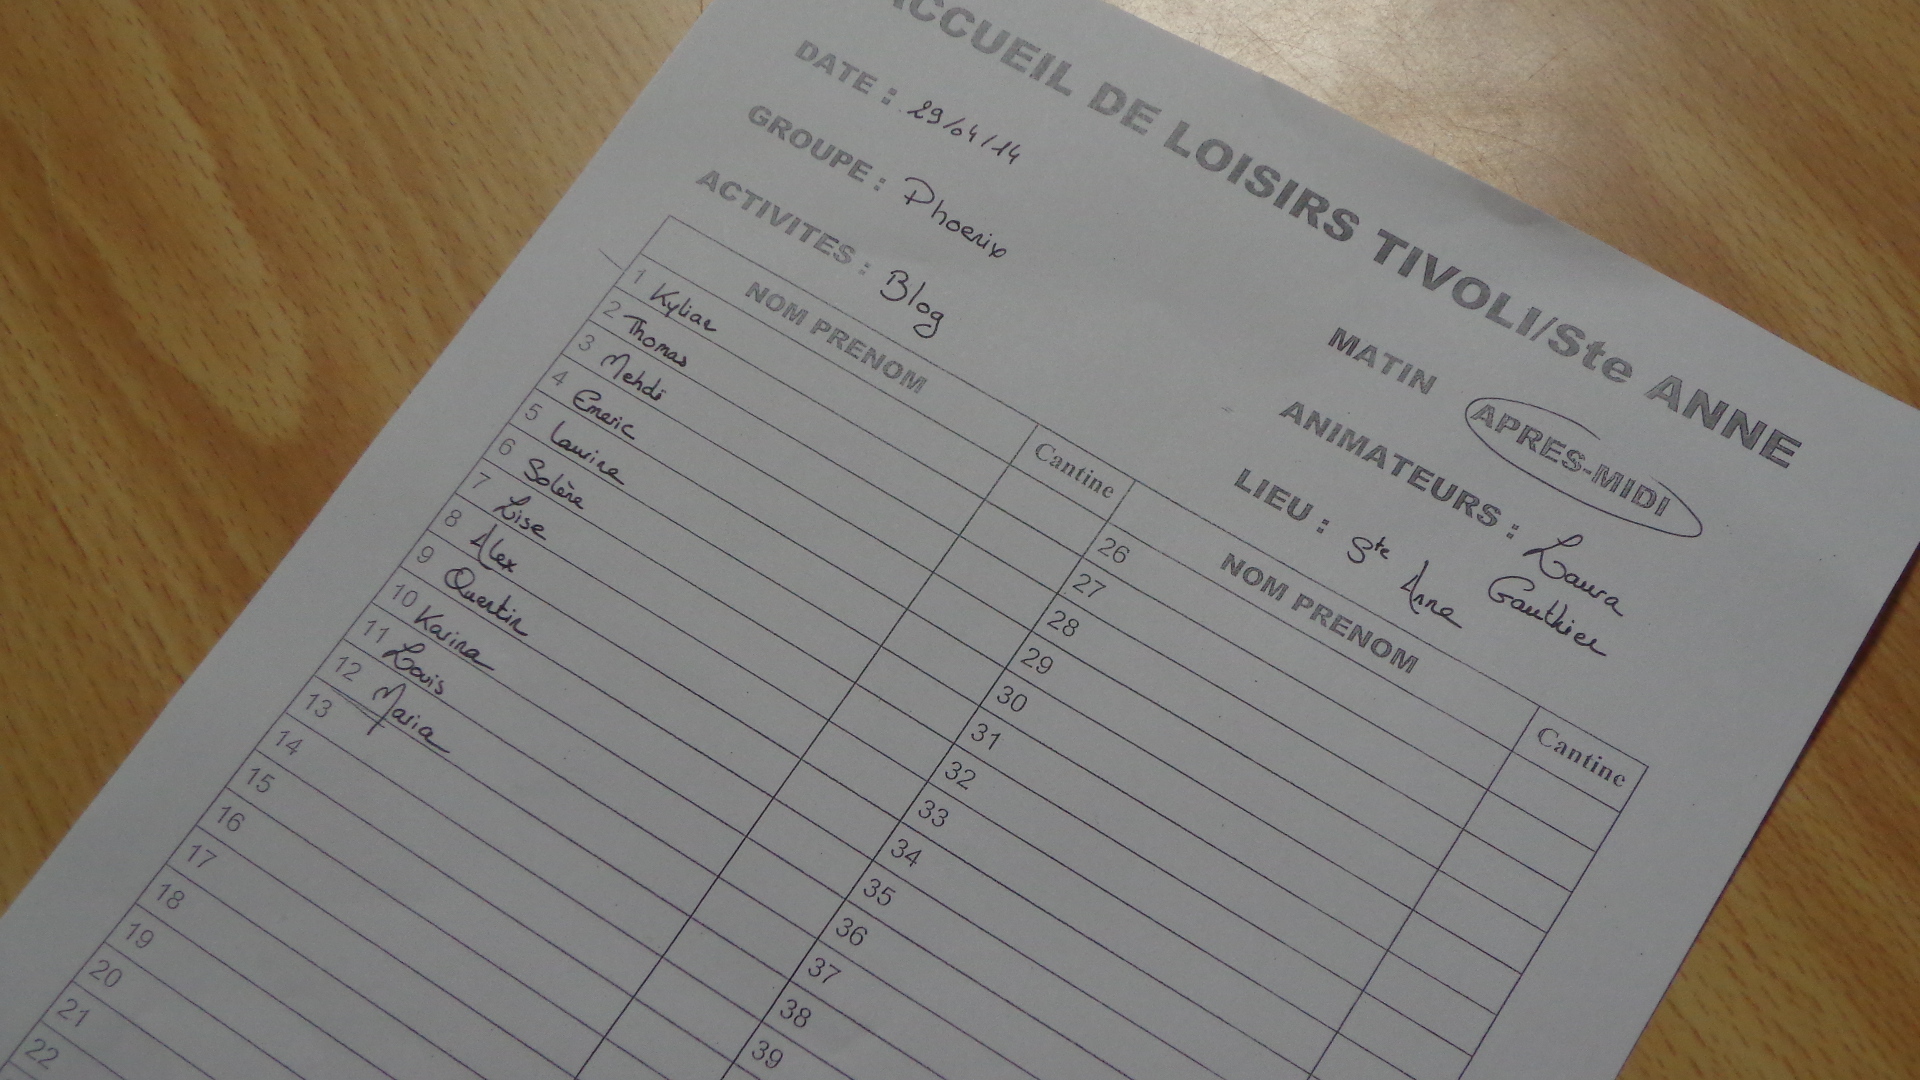 ACCUEIL DE LOISIRS TIVOLI/Ste ANNE
DATE : 29/04/14
MATIN APRES-MIDI
GROUPE : Phoenix
ANIMATEURS : Laura
Gauthier
ACTIVITES : Blog
LIEU : Ste Anne
NOM PRENOM Cantine NOM PRENOM Cantine
1 Kylian
2 Thomas
3 Mehdi
4 Emeric
5 Laurine
6 Solène
7 Lise
8 Alex
9 Quentin
10 Karina
11 Louis
12 Maria
13
14
15
16
17
18
19
20
21
22
26
27
28
29
30
31
32
33
34
35
36
37
38
39